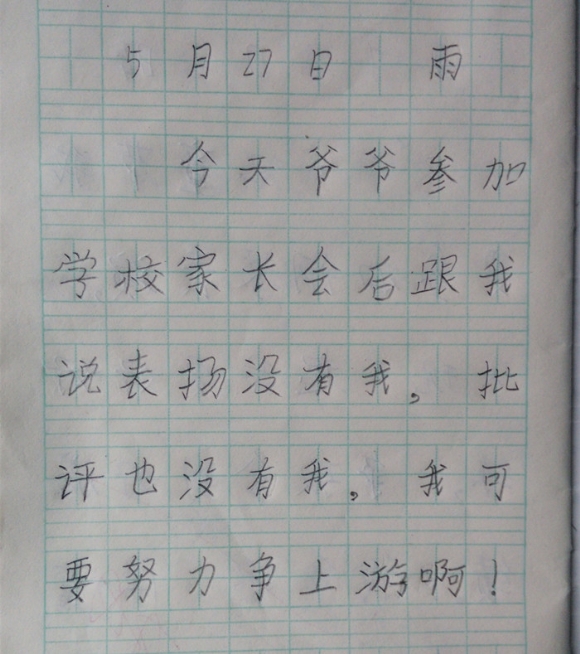 5月27日 雨
今天爷爷参加
学校家长会后跟我
说表扬没有我，批
评也没有我。我可
要努力争上游啊！